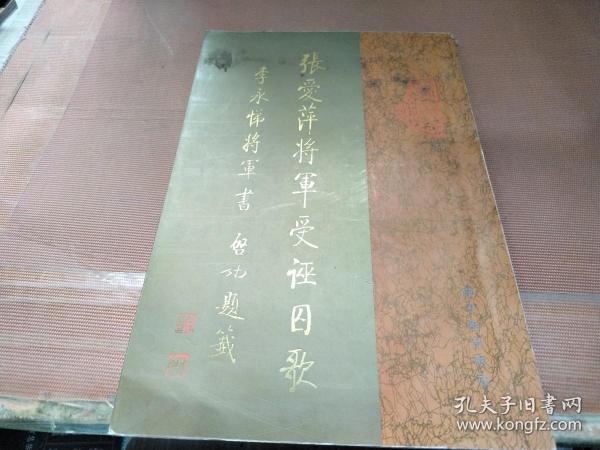 張愛萍將軍受誣囚歌
李永悌將軍書
啓功題籤
孔夫子旧书网
www.kongfz.com